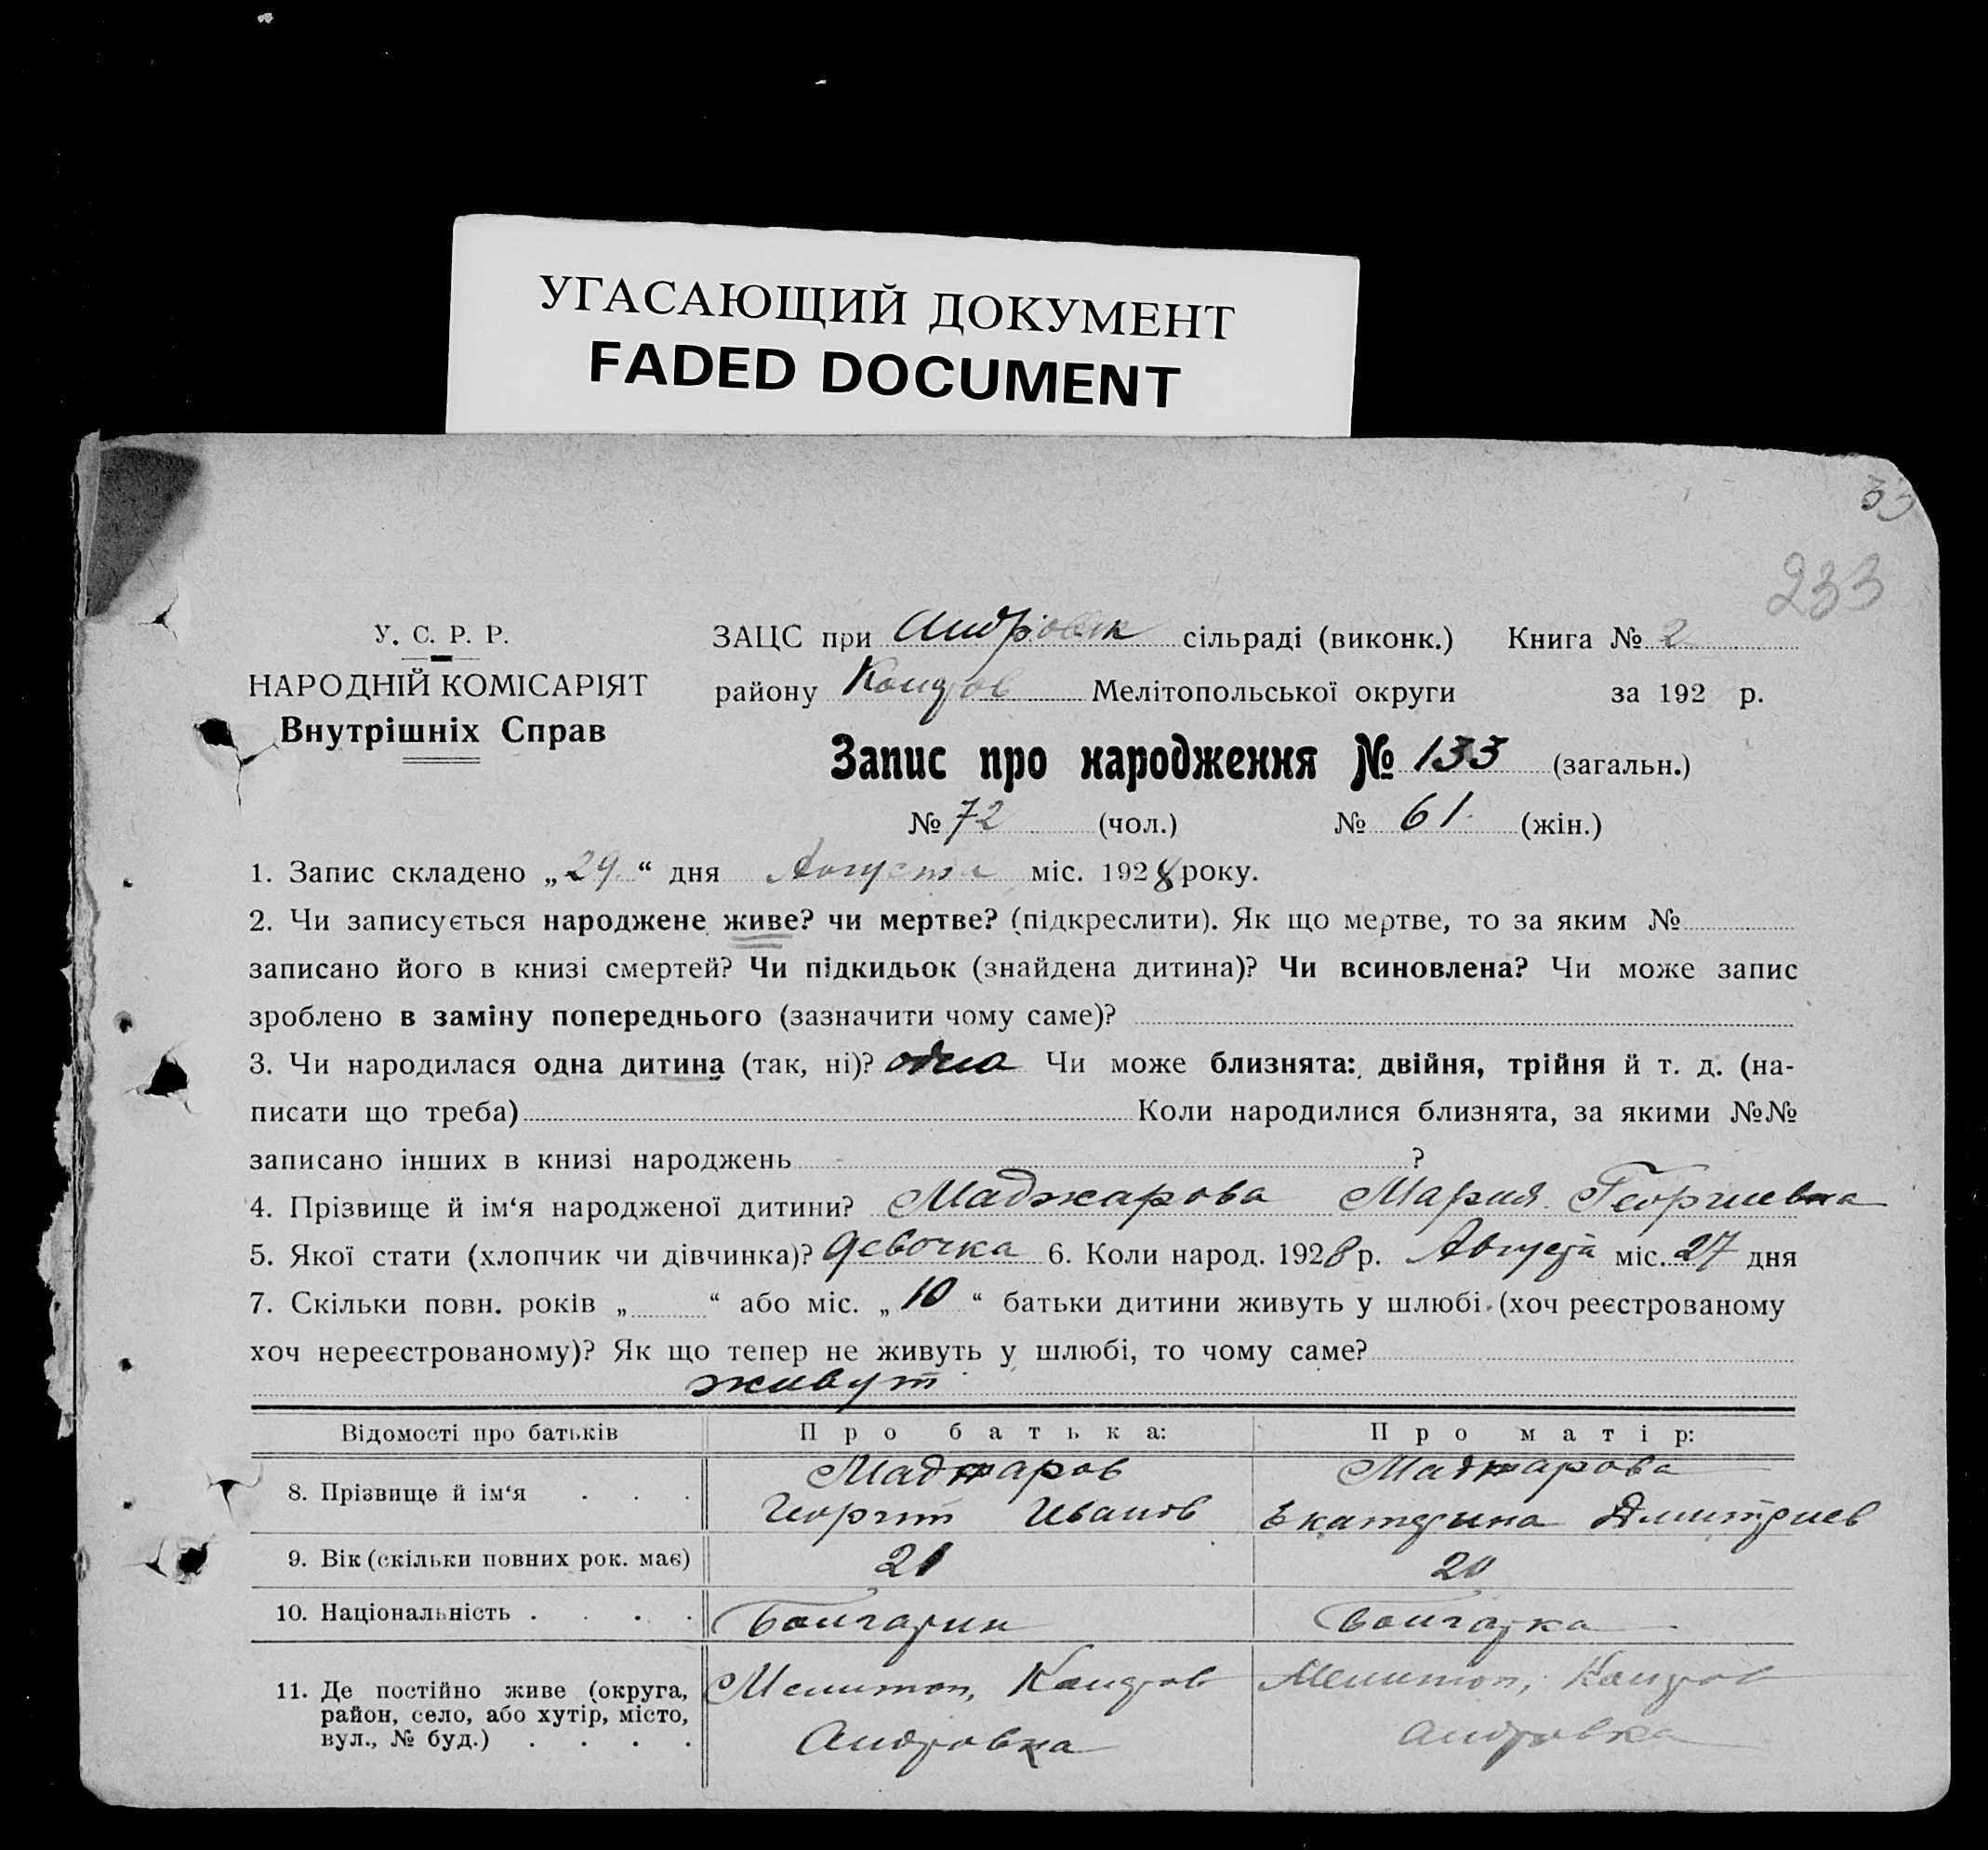 УГАСАЮЩИЙ ДОКУМЕНТ
FADED DOCUMENT
233
У. С. Р. Р.
НАРОДНІЙ КОМІСАРІЯТ
Внутрішніх Справ
ЗАЦС при Андровск сільраді (виконк.) Книга № 2
району Кондров Мелітопольської округи за 192 р.
Запис про народження № 133 (загальн.)
№ 72 (чол.) № 61 (жін.)
1. Запис складено „29“ дня Августа міс. 1928 року.
2. Чи записується народжене живе? чи мертве? (підкреслити). Як що мертве, то за яким №
записано його в книзі смертей? Чи підкидьок (знайдена дитина)? Чи всиновлена? Чи може запис
зроблено в заміну попереднього (зазначити чому саме)?
3. Чи народилася одна дитина (так, ні)? одна Чи може близнята: двійня, трійня й т. д. (на-
писати що треба) Коли народилися близнята, за якими №№
записано інших в книзі народжень ?
4. Прізвище й ім‘я народженої дитини? Маджарова Мария Георгиевна
5. Якої стати (хлопчик чи дівчинка)? девочка 6. Коли народ. 1928 р. Августа міс. 27 дня
7. Скільки повн. років „ “ або міс. „10“ батьки дитини живуть у шлюбі (хоч реєстрованому
хоч нереєстрованому)? Як що тепер не живуть у шлюбі, то чому саме?
живут
Відомості про батьків Про батька: Про матір:
8. Прізвище й ім‘я . . . Маджаров Маджарова
Георгий Иванов Екатерина Дмитриев
9. Вік (скільки повних рок. має) 21 20
10. Національність . . . . Болгарин Болгарка
11. Де постійно живе (округа, район, село, або хутір, місто, вул., № буд.) . . . . Мелитоп, Кондров Мелитоп, Кондров
Андровка Андровка